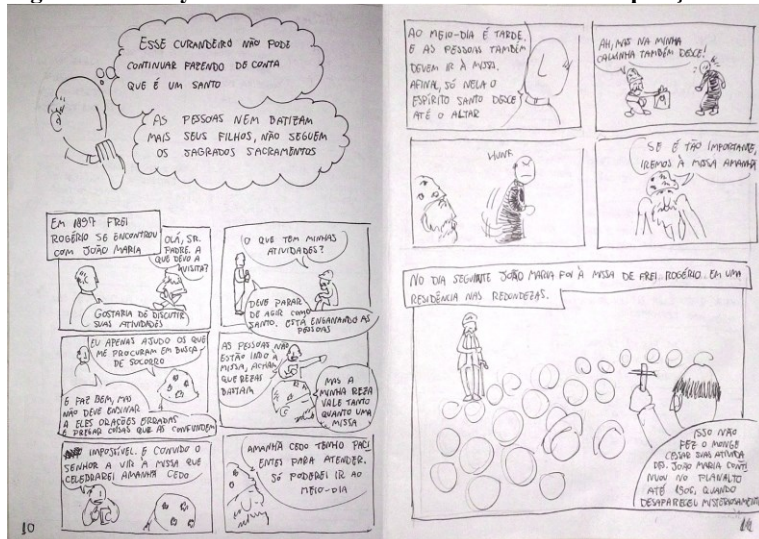 ESSE CURANDEIRO NÃO PODE
CONTINUAR FAZENDO DE CONTA
QUE É UM SANTO
AS PESSOAS NEM BATIZAM
MAIS SEUS FILHOS, NÃO SEGUEM
OS SAGRADOS SACRAMENTOS
EM 1897 FREI
ROGÉRIO SE ENCONTROU
COM JOÃO MARIA
OLÁ, SR.
PADRE. A
QUE DEVO A
VISITA?
GOSTARIA DE DISCUTIR
SUAS ATIVIDADES
O QUE TEM MINHAS
ATIVIDADES?
DEVE PARAR
DE AGIR COMO
SANTO. ESTÁ ENGANANDO AS
PESSOAS
EU APENAS AJUDO OS QUE
ME PROCURAM EM BUSCA
DE SOCORRO
E FAZ BEM, MAS
NÃO DEVE ENSINAR
A ELES ORAÇÕES ERRADAS
E PREGAR COISAS QUE AS CONFUNDEM
AS PESSOAS NÃO
ESTÃO INDO À
MISSA, ACHAM
QUE REZAS
BASTAM
MAS A
MINHA REZA
VALE TANTO
QUANTO UMA
MISSA
IMPOSSÍVEL. E CONVIDO O
SENHOR A VIR À MISSA QUE
CELEBRAREI AMANHÃ CEDO
AMANHÃ CEDO TENHO PACI
ENTES PARA ATENDER.
SÓ PODEREI IR AO
MEIO-DIA
10
AO MEIO-DIA É TARDE.
E AS PESSOAS TAMBÉM
DEVEM IR À MISSA.
AFINAL, SÓ NELA O
ESPÍRITO SANTO DESCE
ATÉ O ALTAR
AH, MAS NA MINHA
TAMBÉM DESCE!
HUNF
SE É TÃO IMPORTANTE,
IREMOS À MISSA AMANHÃ
NO DIA SEGUINTE JOÃO MARIA FOI À MISSA DE FREI ROGÉRIO EM UMA
RESIDÊNCIA NAS REDONDEZAS.
ISSO NÃO
FEZ O MONGE
CESSAR SUAS ATIVIDA
DES. JOÃO MARIA CONTI
NUOU NO PLANALTO
ATÉ 1906, QUANDO
DESAPARECEU MISTERIOSAMENTE